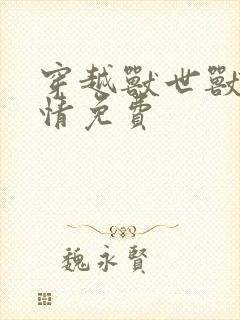 穿越獸世獸
情免費
魏永賢